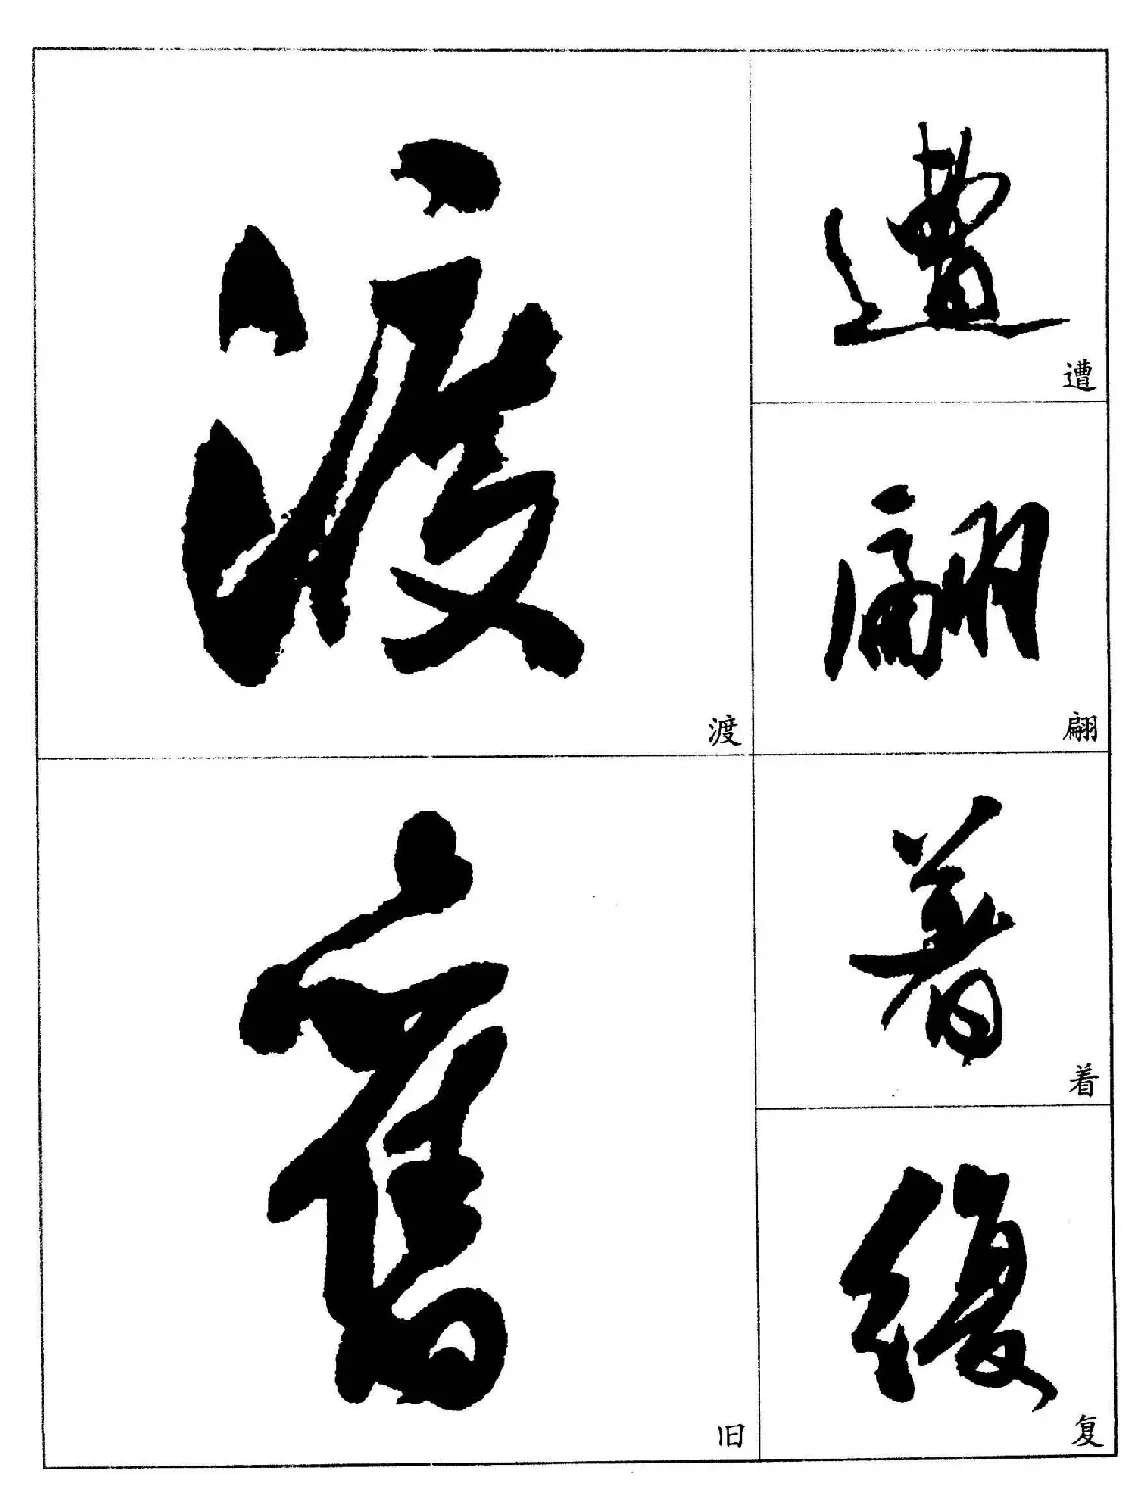 渡
渡
舊
旧
遭
遭
翩
翩
着
着
復
复